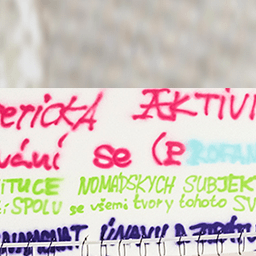 erická AKTIVI
vání se (PROFAN
ITUCE NOMÁDSKÝCH SUBJEKT
SPOLU se všemi tvory tohoto SV
ÚNAVU A